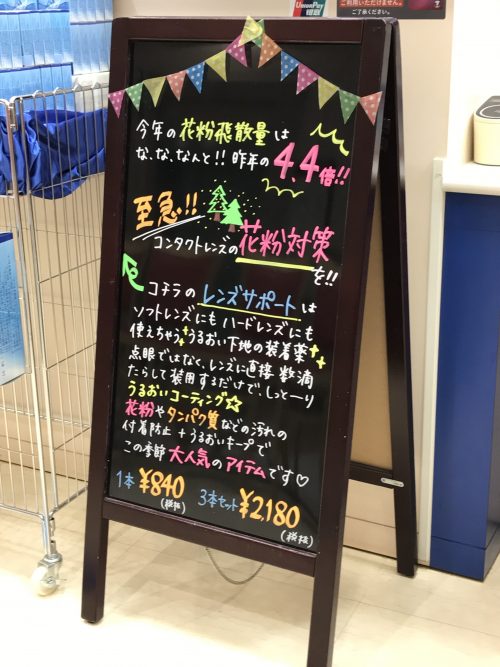 UnionPay
銀聯
ご利用いただけません。
ご了承ください。
今年の花粉飛散量は
な、な、なんと!!昨年の4.4倍!!
至急!!
コンタクトレンズの花粉対策
を!!
コチラのレンズサポートは
ソフトレンズにもハードレンズにも
使えちゃう うるおい下地の装着薬
点眼ではなく、レンズに直接数滴
たらして装用するだけで、しっと〜り
うるおいコーティング☆
花粉やタンパク質などの汚れの
付着防止+うるおいキープで
この季節大人気のアイテムです♡
1本 ¥840 3本セット ¥2,180
(税抜) (税抜)